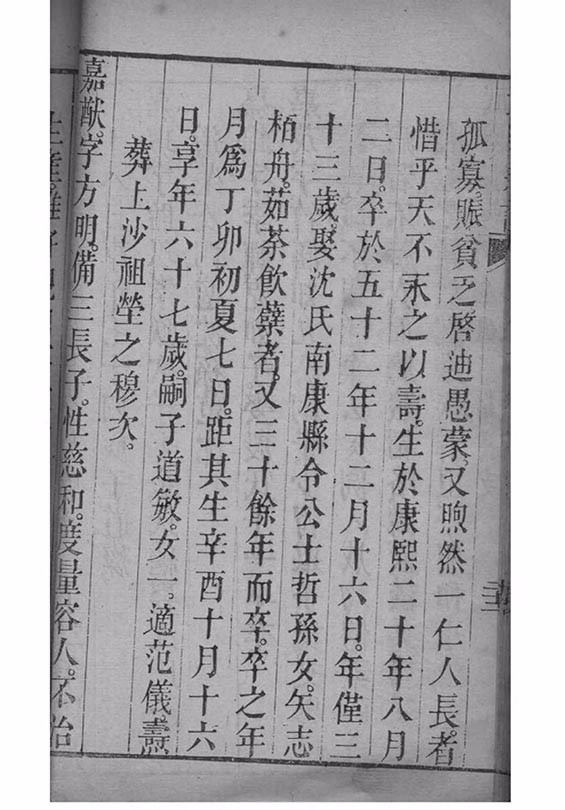 孤寡。賑貧乏。啓迪愚蒙。又煦然一仁人長者。
惜乎天不永之以壽。生於康熙二十年八月
二日。卒於五十二年十二月十六日。年僅三
十三歲。娶沈氏南康縣令公士哲孫女。矢志
栢舟。茹荼飲蘗者。又三十餘年而卒。卒之年
月爲丁卯初夏七日。距其生辛酉十月十六
日。享年六十七歲。嗣子道敏。女一。適范儀燾
葬上沙祖塋之穆次。
嘉猷。字方明。備三長子。性慈和。度量容人。不治